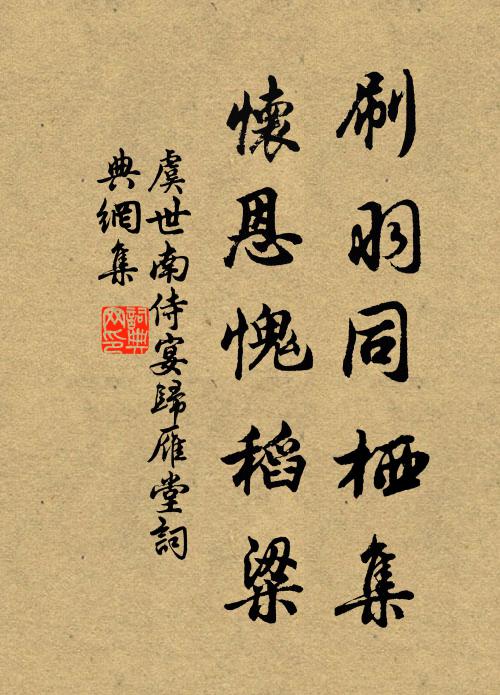 刷羽同栖集
懷恩愧稻粱
虞世南侍宴歸雁堂詞
典網集
詞典網印